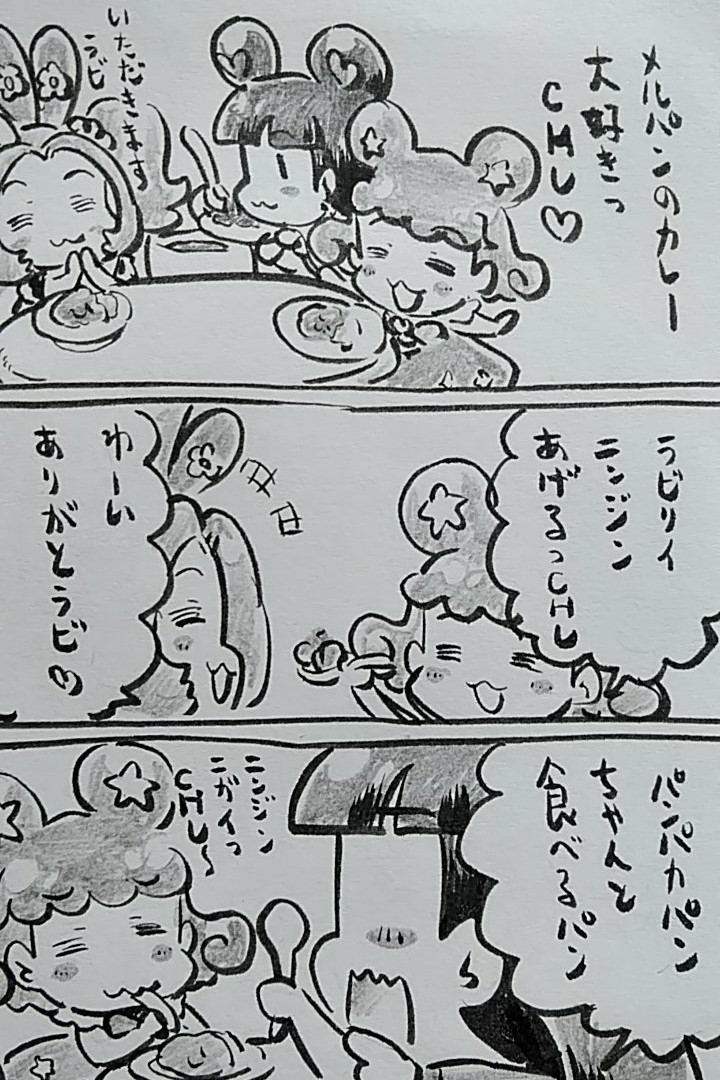 メルパンのカレー
大好きっ
CHU♡
いただきます
ラビ
ラビリィ
ニンジン
あげるっCHU
わーい
ありがとラビ♡
パンパカパン
ちゃんと
食べるパン
ニンジン
ニガイっ
CHU～